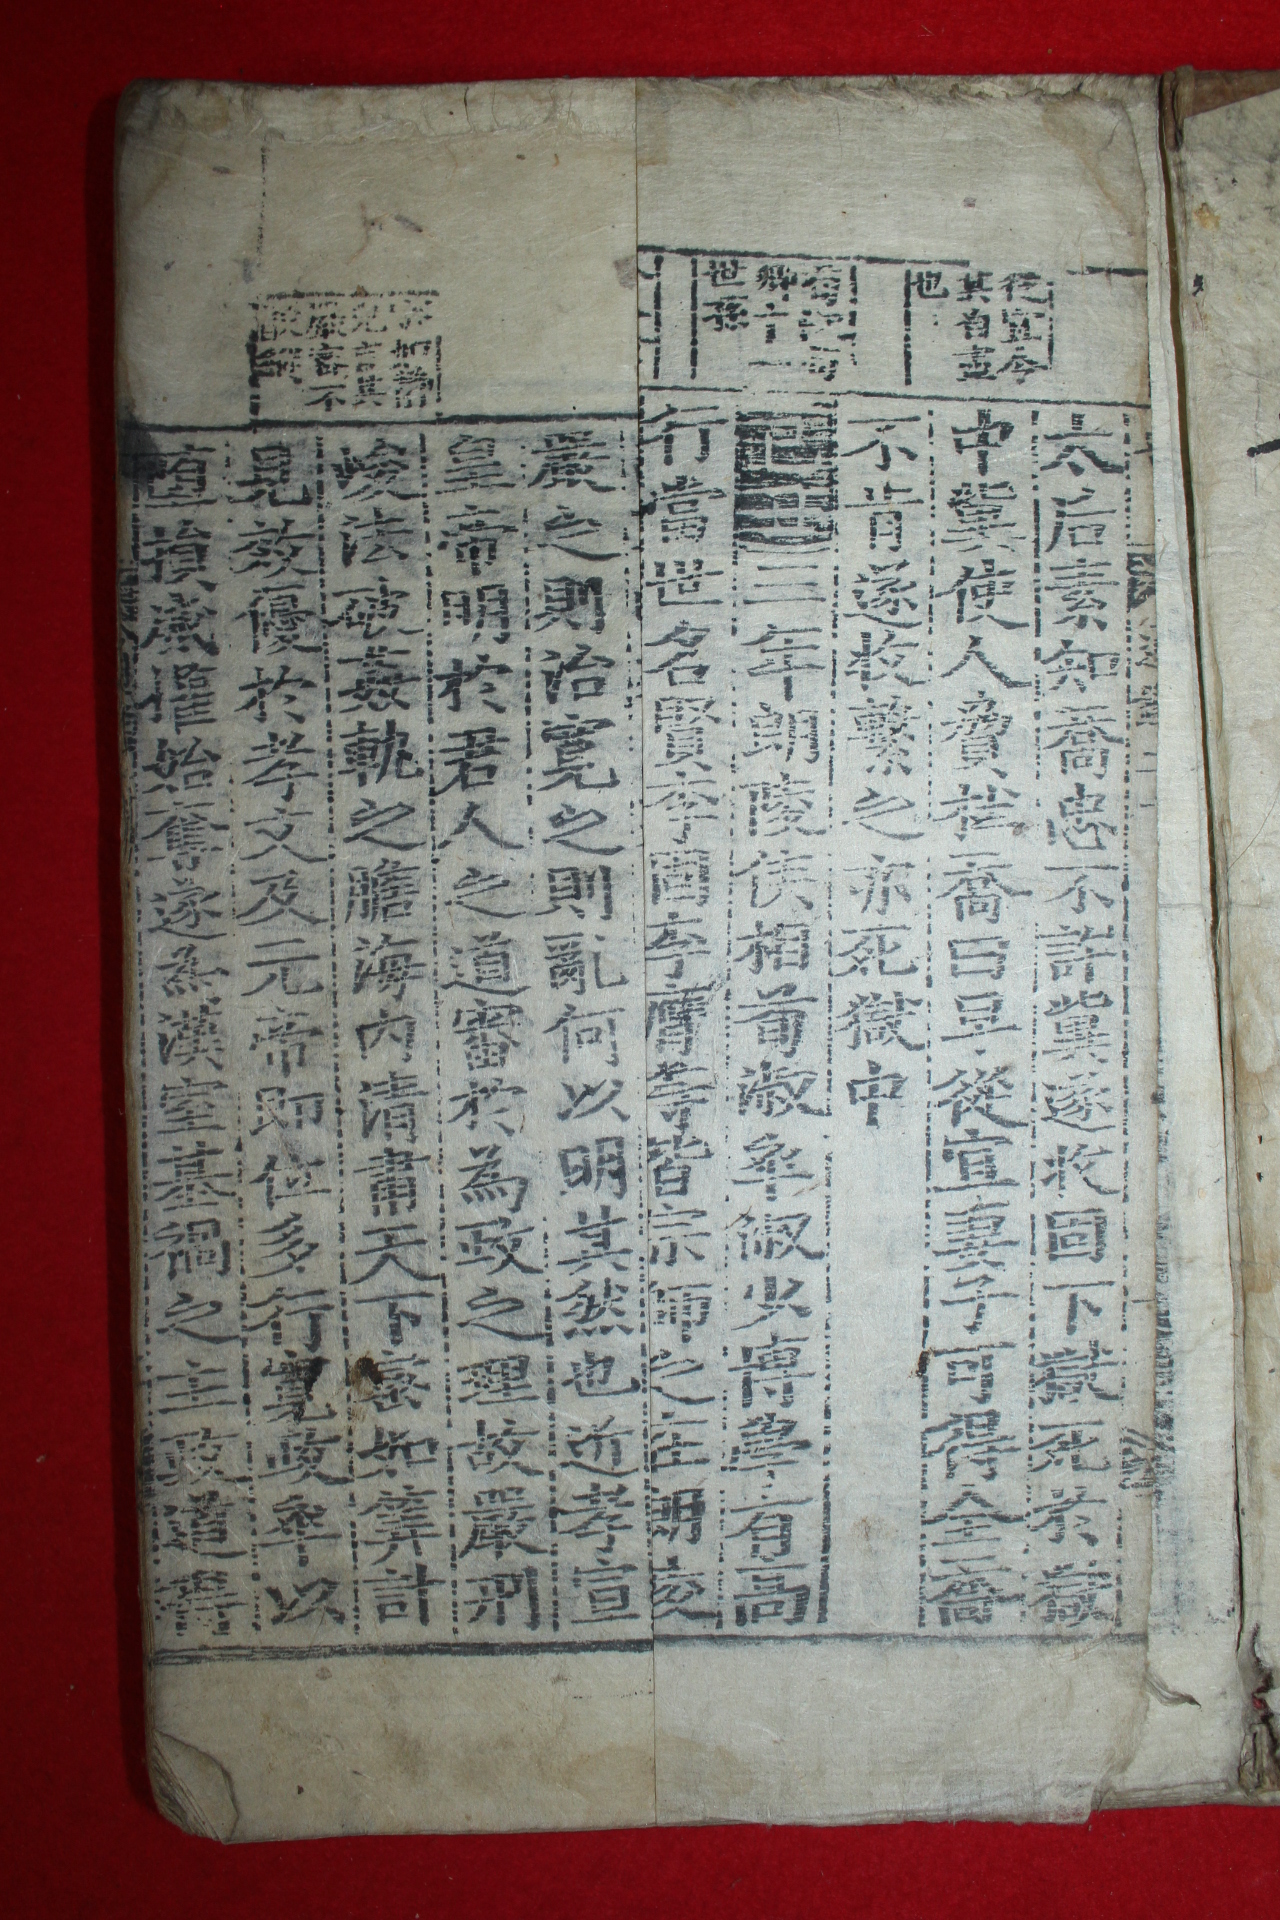 從宜令
其自盡
也
荀淑荀
卿十一
世孫
密如靜
皃言其
嚴密不
太后素知喬忠不許冀遂收固下獄死於獄
中冀使人脅杜喬曰早從宜妻子可得全喬
不肯遂收繫之亦死獄中
己丑三年朗陵侯相荀淑卒淑少博學有高
行當世名賢李固李膺等皆宗師之在朗陵
嚴之則治寬之則亂何以明其然也近孝宣
皇帝明於君人之道審於為政之理故嚴刑
峻法破姦軌之膽海內清肅天下密如筭計
見效優於孝文及元帝即位多行寬政卒以
墮損威權始奪遂為漢室基禍之主政道得